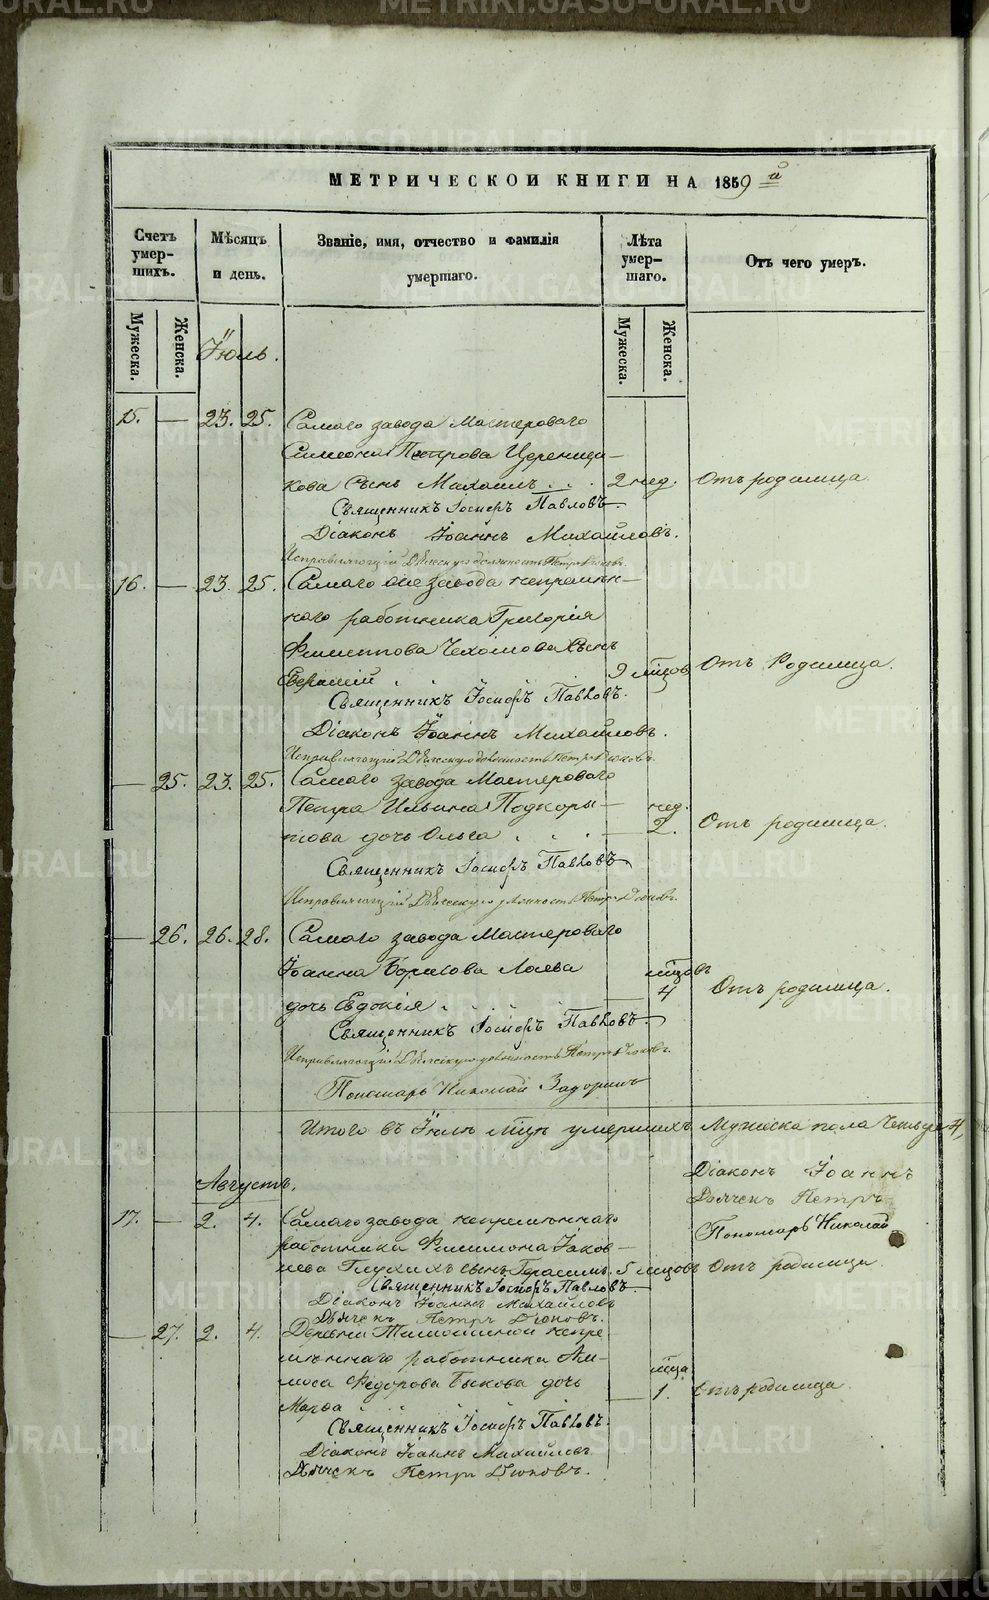 МЕТРИЧЕСКОЙ КНИГИ НА 1859 й
Счетъ умер-шихъ.
Мѣсяцъ и день.
Званіе, имя, отчество и фамилія умершаго.
Лѣта умер-шаго.
Отъ чего умеръ.
Мужеска.
Женска.
Мужеска.
Женска.
Іюль.
15. — 23. 25. Самаго завода Мастероваго
Симеона Петрова
кова сынъ Михаилъ . . . 2 нед. Отъ родимца.
Священникъ Іосифъ Павловъ.
Діаконъ Іоаннъ Михайловъ.
Исправляющій Дьяческую должность Петръ Дюковъ.
16. — 23. 25. Самаго завода непремѣн-
наго работника Григорія
Филиппова сынъ
9 мцовъ Отъ Родимца.
Священникъ Іосифъ Павловъ.
Діаконъ Іоаннъ Михайловъ.
Исправляющій Дьяческую должность Петръ Дюковъ.
— 25. 23. 25. Самаго завода Мастероваго
Петра Ильина Подкоры-
това дочь Ольга . . . нед. 2. Отъ родимца.
Священникъ Іосифъ Павловъ
Исправляющій Дьяческую должность Петръ Дюковъ.
— 26. 26. 28. Самаго завода Мастероваго
Іоанна Борисова
дочь Евдокія . . . . мцовъ 4 Отъ родимца.
Священникъ Іосифъ Павловъ.
Исправляющій Дьяческую должность Петръ Дюковъ.
Пономарь Николай Задоринъ
Итого въ Іюлѣ мцѣ умершихъ Мужеска пола Четыре 4,
Діаконъ Іоаннъ
Дьячекъ Петръ
Пономарь Николай
Августъ.
17. — 2. 4. Самаго завода непремѣннаго
работника Филимона Іаков-
лева Глухихъ сынъ Герасимъ. 5 мцовъ Отъ родимца.
Священникъ Іосифъ Павловъ.
Діаконъ Іоаннъ Михайловъ
Дьячекъ Петръ Дюковъ.
— 27. 2. 4. Деревни непре-
мѣннаго работника
Федорова Быкова дочь
Марѳа . . . . мца 1. Отъ родимца.
Священникъ Іосифъ Павловъ.
Діаконъ Іоаннъ Михайловъ.
Дьячекъ Петръ Дюковъ.
METRIKI.GASO-URAL.RU